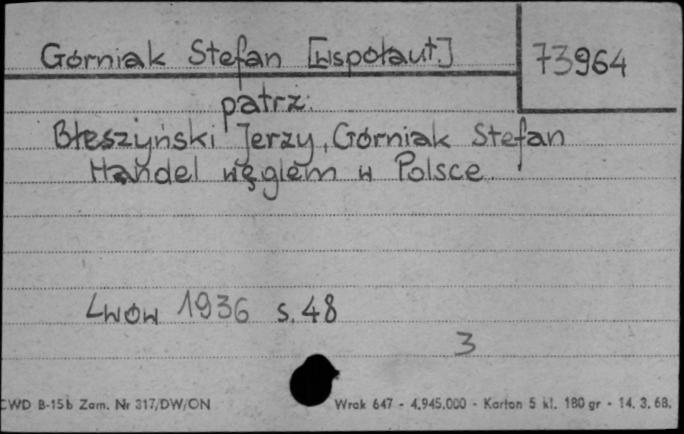 Górniak Stefan [współaut.] 73964
patrz:
Błeszyński Jerzy, Górniak Stefan
Handel węglem w Polsce.
Lwów 1936 s. 48
3
CWD B-15b Zam. Nr 317/DW/ON Wrak 647 - 4.945.000 - Karton 5 kl. 180 gr - 14. 3. 68.